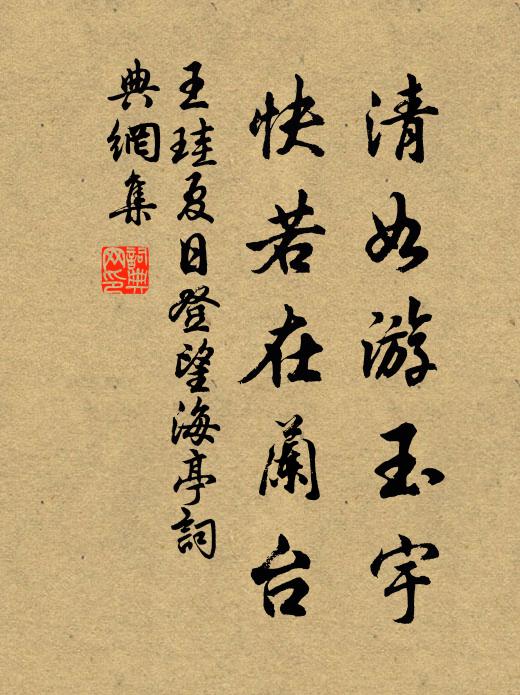 清如游玉宇
快若在蘭台
王珪夏日登望海亭詞
典網集
詞典網印